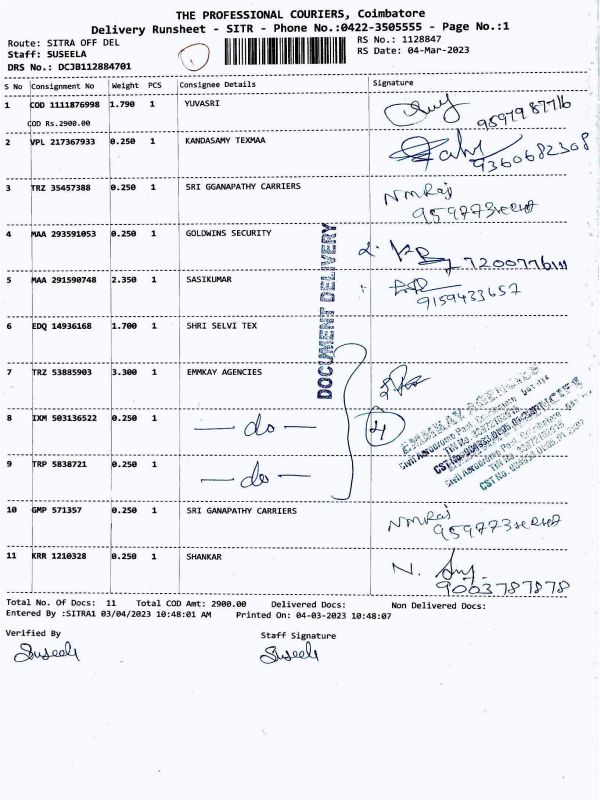 THE PROFESSIONAL COURIERS, Coimbatore
Delivery Runsheet - SITR - Phone No.:0422-3505555 - Page No.:1
Route: SITRA OFF DEL
Staff: SUSEELA
DRS No.: DCJB112884701
1
RS No.: 1128847
RS Date: 04-Mar-2023
S No Consignment No Weight PCS Consignee Details Signature
1 COD 1111876998 1.790 1 YUVASRI
COD Rs.2900.00
9597987716
2 VPL 217367933 0.250 1 KANDASAMY TEXMAA
9360682308
3 TRZ 35457388 0.250 1 SRI GGANAPATHY CARRIERS NMRaj
4 MAA 293591053 0.250 1 GOLDWINS SECURITY
5 MAA 291590748 2.350 1 SASIKUMAR
9159433657
DOCUMENT DELIVERY
6 EDQ 14936168 1.700 1 SHRI SELVI TEX
7 TRZ 53885903 3.300 1 EMMKAY AGENCIES
8 IXM 503136522 0.250 1 — do — 4
EMMKAY AGENCIES
9 TRP 5838721 0.250 1 — do —
10 GMP 571357 0.250 1 SRI GANAPATHY CARRIERS NMRaj
11 KRR 1210328 0.250 1 SHANKAR N.
9003787878
Total No. Of Docs: 11 Total COD Amt: 2900.00 Delivered Docs: Non Delivered Docs:
Entered By :SITRA1 03/04/2023 10:48:01 AM Printed On: 04-03-2023 10:48:07
Verified By Staff Signature
Suseela Suseela